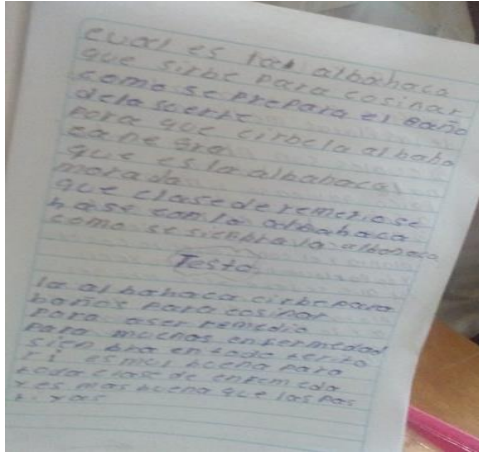 cual es la albahaca
que sirbe para cosinar
como se prepara el baño
dela suerte
para que cirbela albaha
ca ne gra
que es la albahaca
morada
que clase de remerio se
hase con la albahaca
como se sienbra la albahaca
Testo
la al bahaca cirbe para
baños para cosinar
para aser remedio
para muchas enfermedad
sien bra en todo terito
ri es muy buena para
toda clase de enfermeda
res mas buena que las pas
ti yas